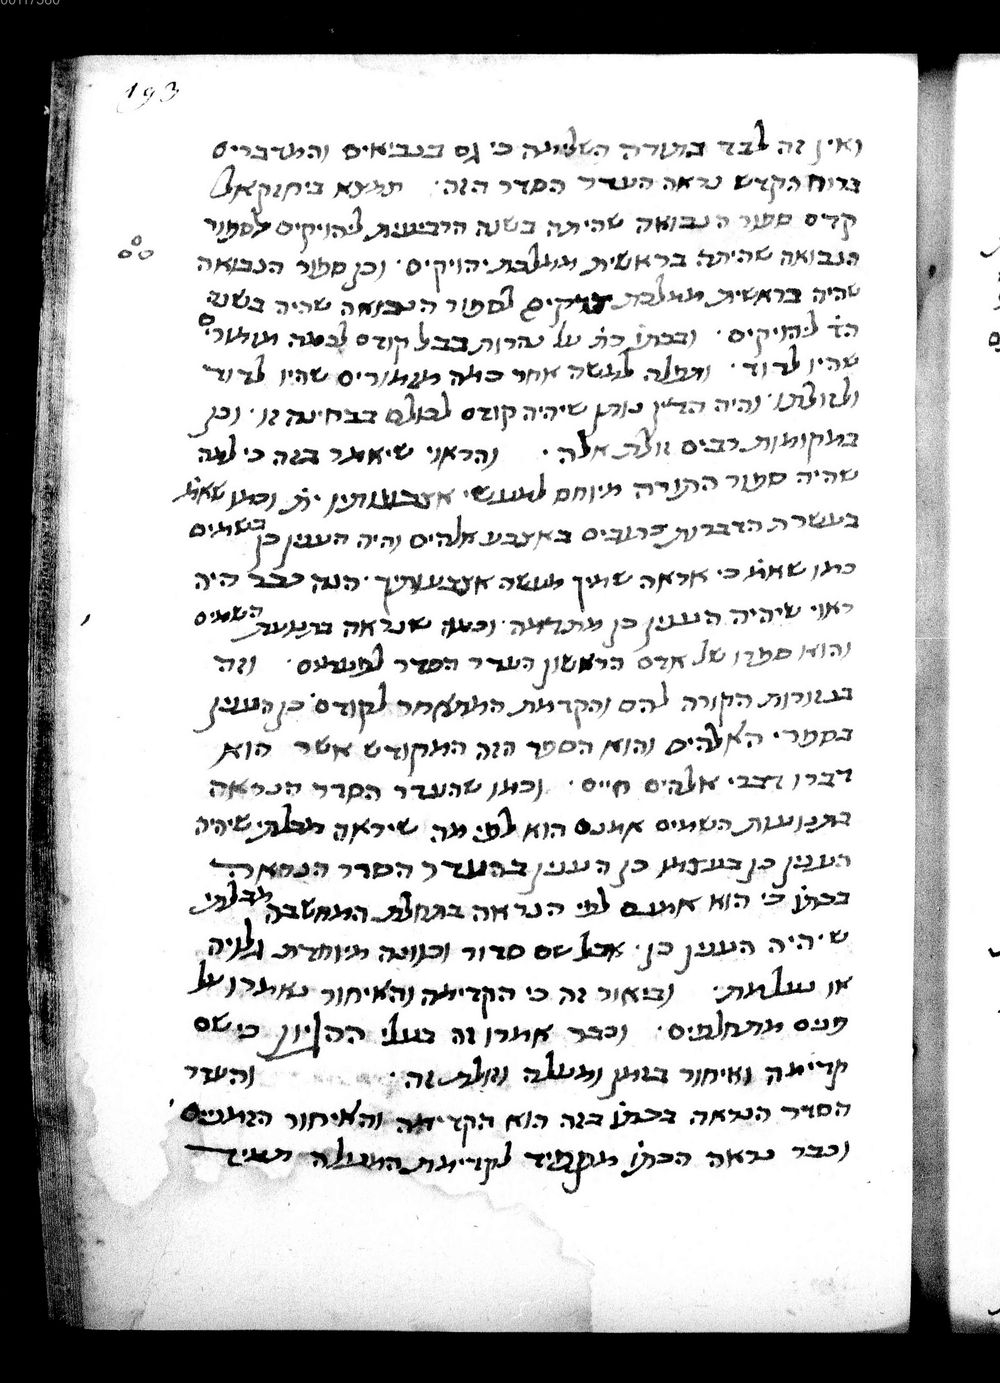 193
ואין זה לבד בתורה השלימה כי גם בנביאים והמדברים
ברוח הקדש נראה העדר הסדר הזה · תמצא ביחזקאל
קדם ספור הנבואה שהיתה בשנה הרביעית ליהויקים לספור
הנבואה שהיתה בראשית ממלכת יהויקים · וכן ספור הנבואה
שהיה בראשית ממלכת צדקיהו לספור הנבואה שהיה בשנה
הד׳ ליהויקים · ובכתו׳ כת׳ על נהרות בבל קודם לכמה מזמורים
שהיו לדוד · ותפלה למשה אחר כמה מזמורים שהיו לדוד
ולזולתו · והיה הדין נותן שיהיה קודם לכולם בבחינה זו · וכן
במקומות רבים זולת אלה · והראוי שיאמר בזה כי למה
שהיה ספור התורה מיוחס למעשי אצבעותיו ית׳ וכמו שאמ׳
בעשרת הדברות כתובים באצבע אלהים והיה הענין כן בשמים
כמו שאמ׳ כי אראה שמיך מעשה אצבעותיך · הנה כבר היה
ראוי שיהיה הענין כן מתדמה · וכמה שנראה בתנועת השמים
והוא ספרו של אדם הראשון העדר הסדר לפעמים · וזה
בגזרות הקורה להם והקדמת המתאחר לקודם · כן הענין
בספרי האלהים והוא הספר הזה המקודש אשר הוא
דברו דברי אלהים חיים · וכמו שהעדר הסדר הנראה
בתנועות השמים אמנם הוא לפי מה שיראה מבלתי שיהיה
הענין כן בעצמו כן הענין בהעדר הסדר הנראה
בכתו׳ כי הוא אמנם לפי הנראה בתחלת המחשבה מבלתי
שיהיה הענין כן · אבל שם סדור וכוונה מיוחדת גלויה
או נעלמת · וביאור זה כי הקדימה והאיחור נאמרו על
פנים מתחלפים · וכבר אמרו זה בעלי ההגיון כי שם
קדימה ואיחור בזמן ומעלה וזולת זה · והעדר
הסדר הנראה בכתו׳ בזה הוא הקדימה והאיחור הזמניים
וכבר נראה הכתו׳ מקפיד לקדימת המעלה תמיד